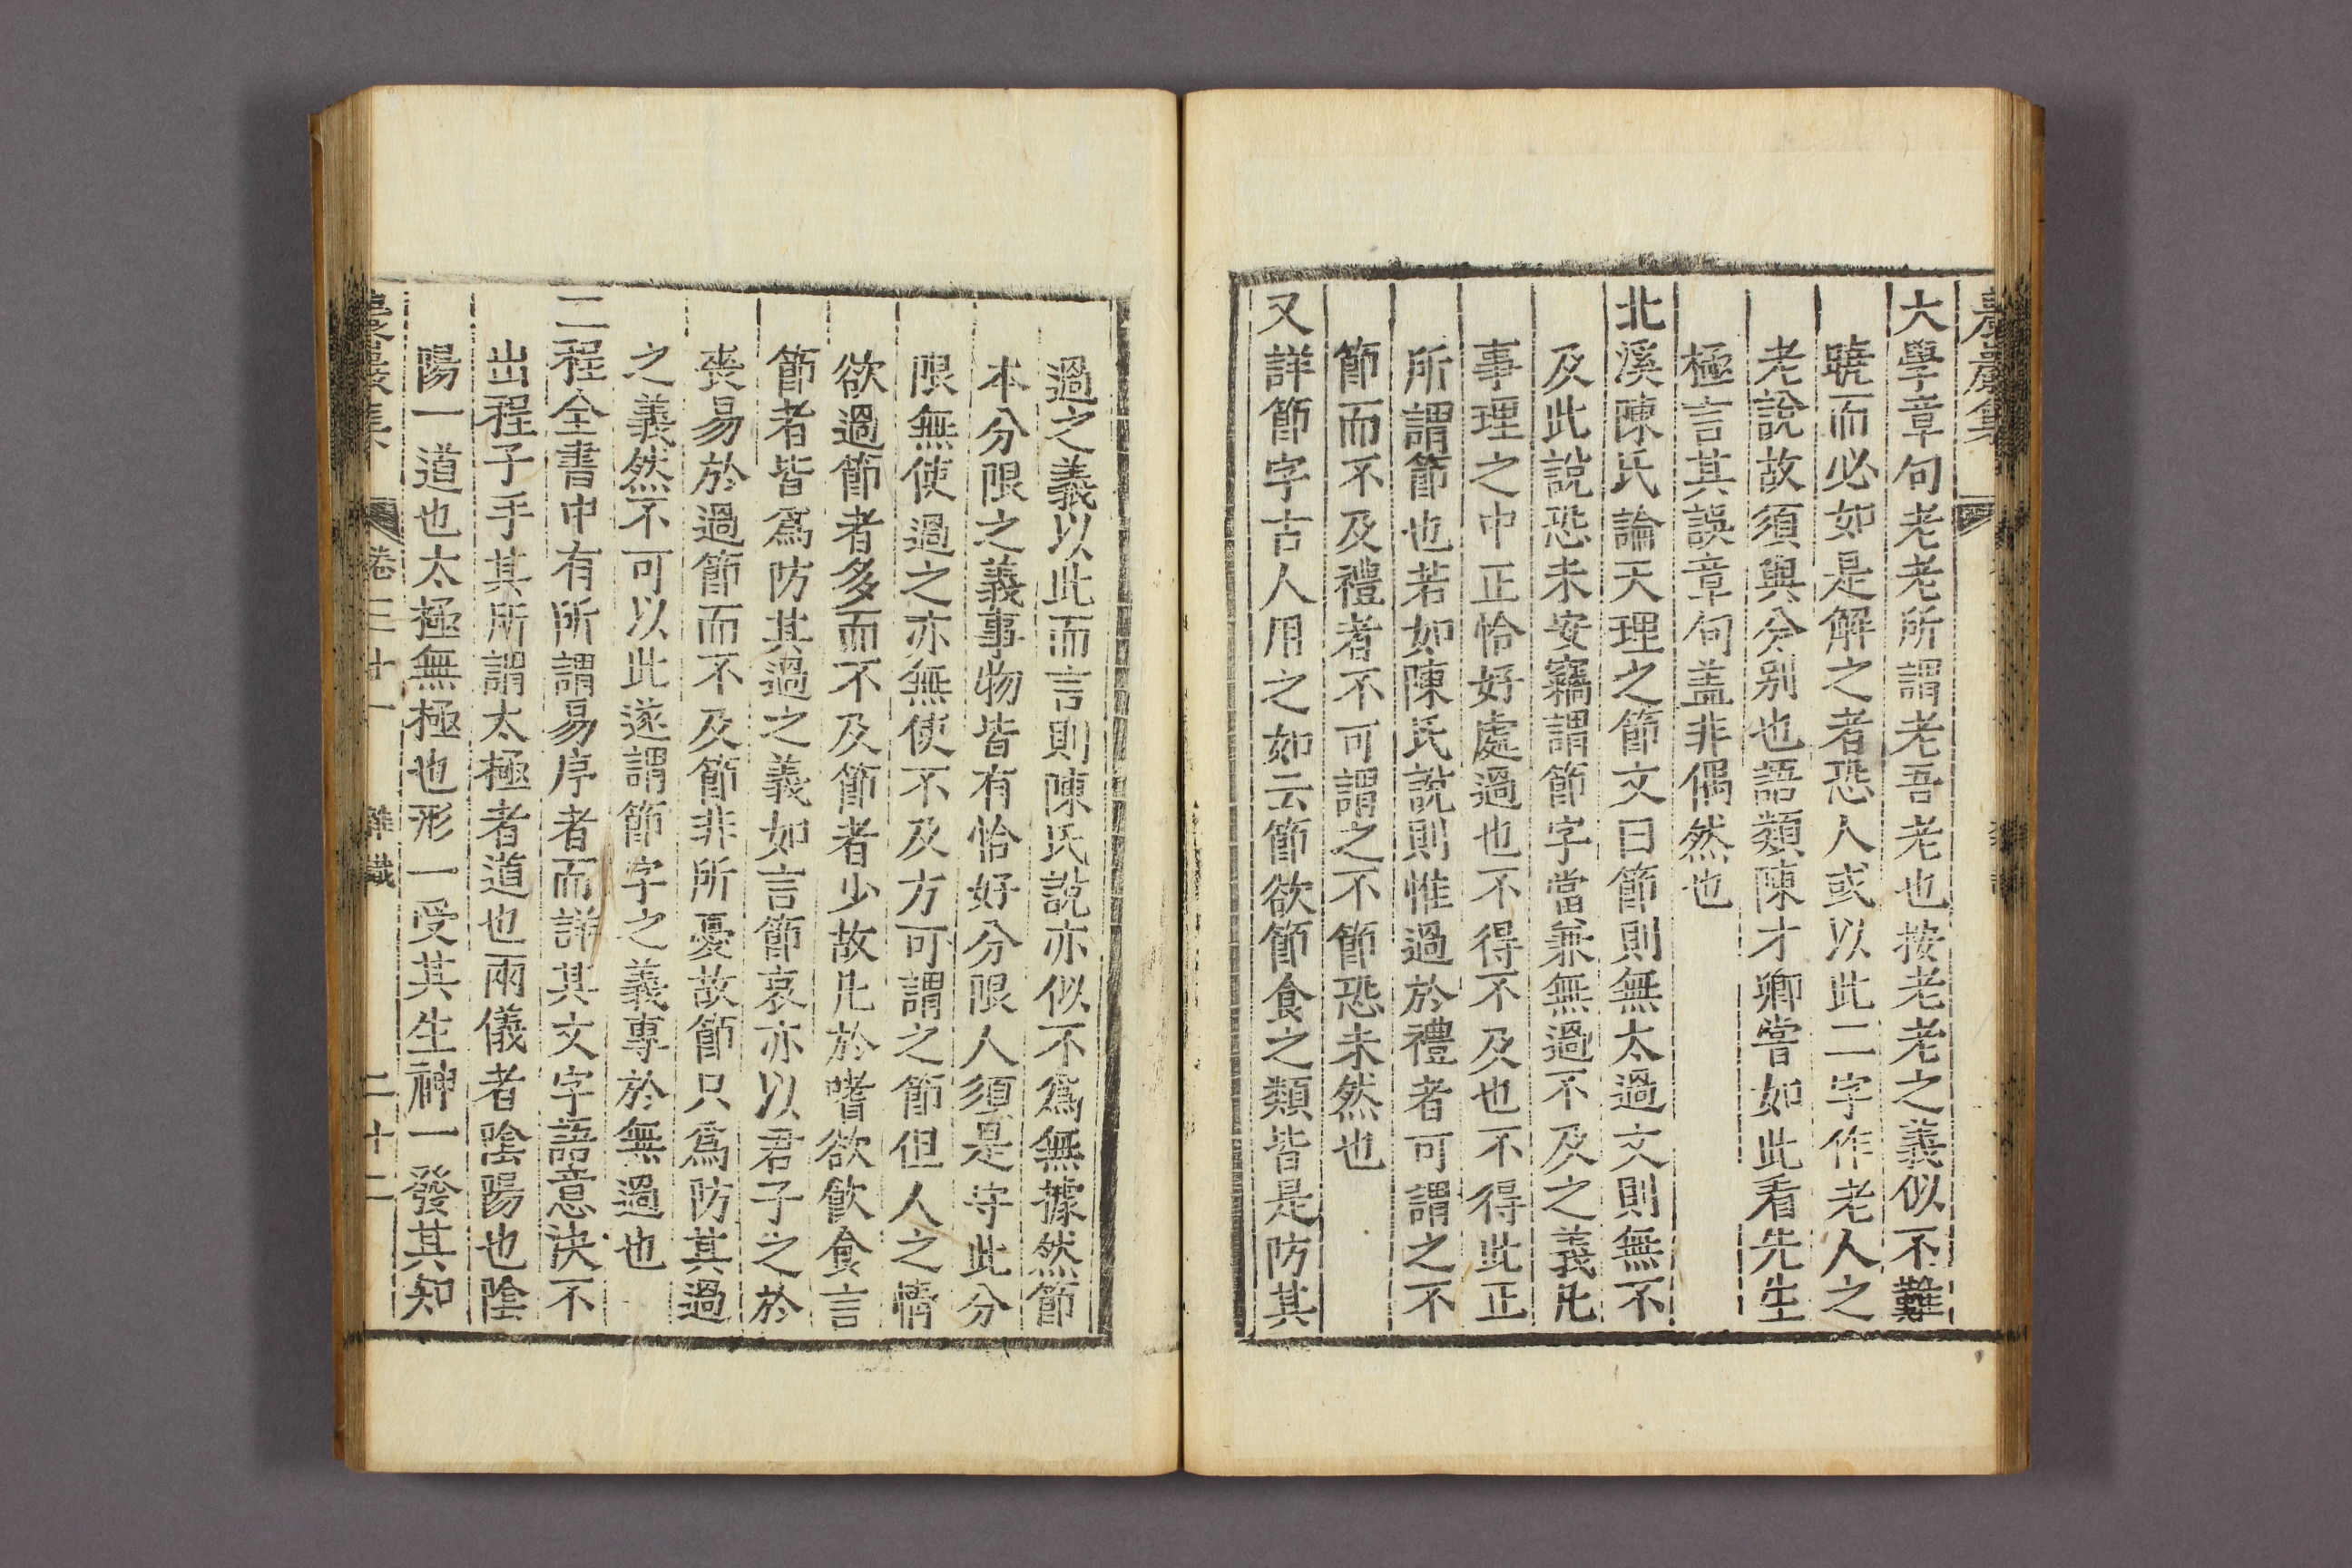 大學章句老老所謂老吾老也按老老之義似不難
曉而必如是解之者恐人或以此二字作老人之
老說故須與分别也語類陳才卿嘗如此看先生
極言其誤章句盖非偶然也
北溪陳氏論天理之節文曰節則無太過文則無不
及此說恐未安竊謂節字當兼無過不及之義凡
事理之中正恰好處過也不得不及也不得此正
所謂節也若如陳氏說則惟過於禮者可謂之不
節而不及禮者不可謂之不節恐未然也
又詳節字古人用之如云節欲節食之類皆是防其
過之義以此而言則陳氏說亦似不爲無據然節
本分限之義事物皆有恰好分限人須是守此分
限無使過之亦無使不及方可謂之節但人之情
欲過節者多而不及節者少故凡於嗜欲飮食言
節者皆爲防其過之義如言節哀亦以君子之於
喪易於過節而不及節非所憂故節只爲防其過
之義然不可以此遂謂節字之義專於無過也
二程全書中有所謂易序者而詳其文字語意決不
出程子手其所謂太極者道也兩儀者陰陽也陰
陽一道也太極無極也形一受其生神一發其知
農巖集 卷三十一 雜識 二十二